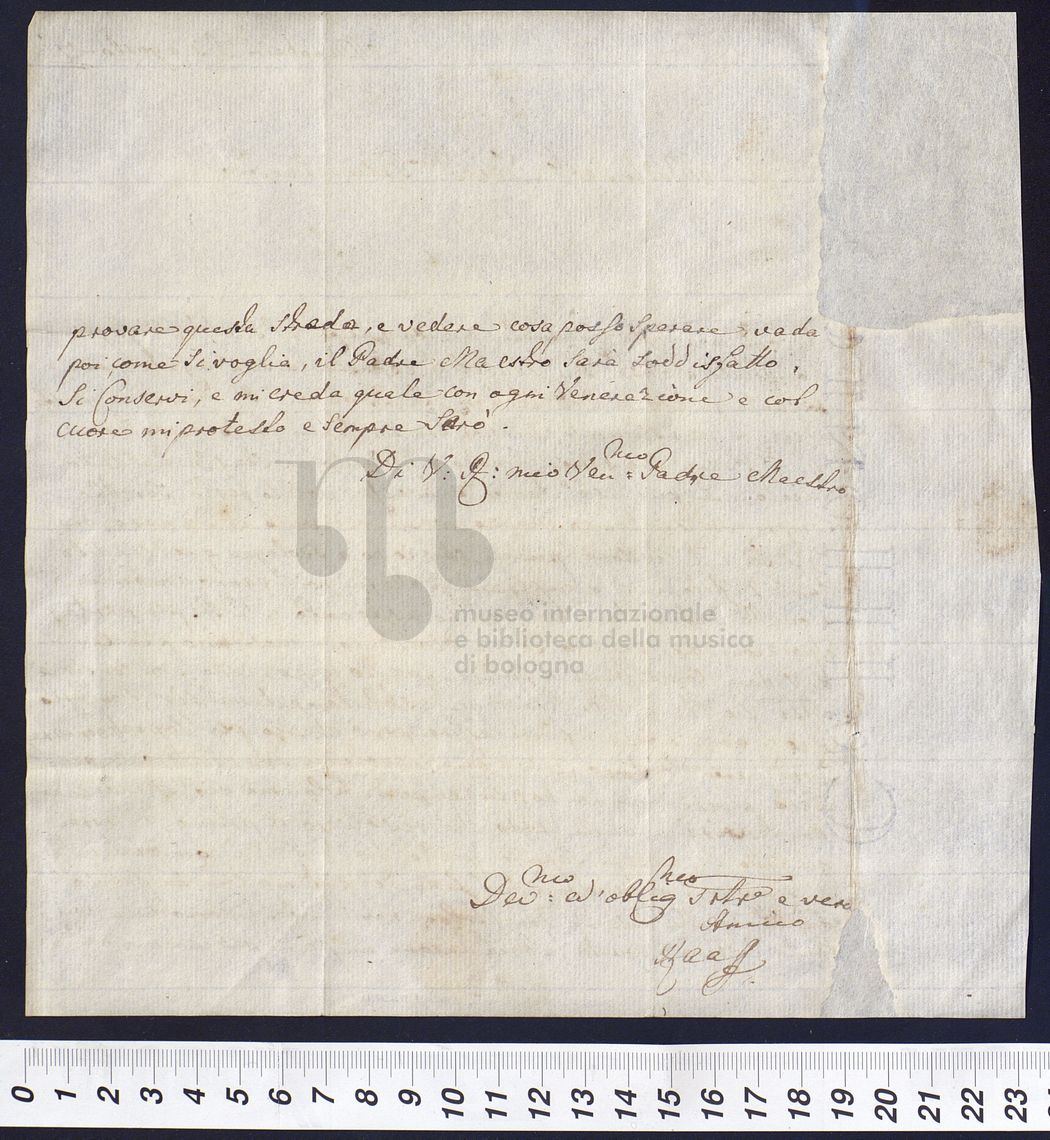 provare questa strada, e vedere cosa posso sperare, vada
poi come si voglia, il Padre Maestro sarà soddisfatto.
Si Conservi, e mi creda quale con ogni Venerazione e col
cuore mi protesto e sempre sarò.
Di V: R: mio Ven:mo Padre Maestro
museo internazionale
e biblioteca della musica
di bologna
Dev:mo ed' obblig:mo e vero
Amico
Raaff
0 1 2 3 4 5 6 7 8 9 10 11 12 13 14 15 16 17 18 19 20 21 22 23